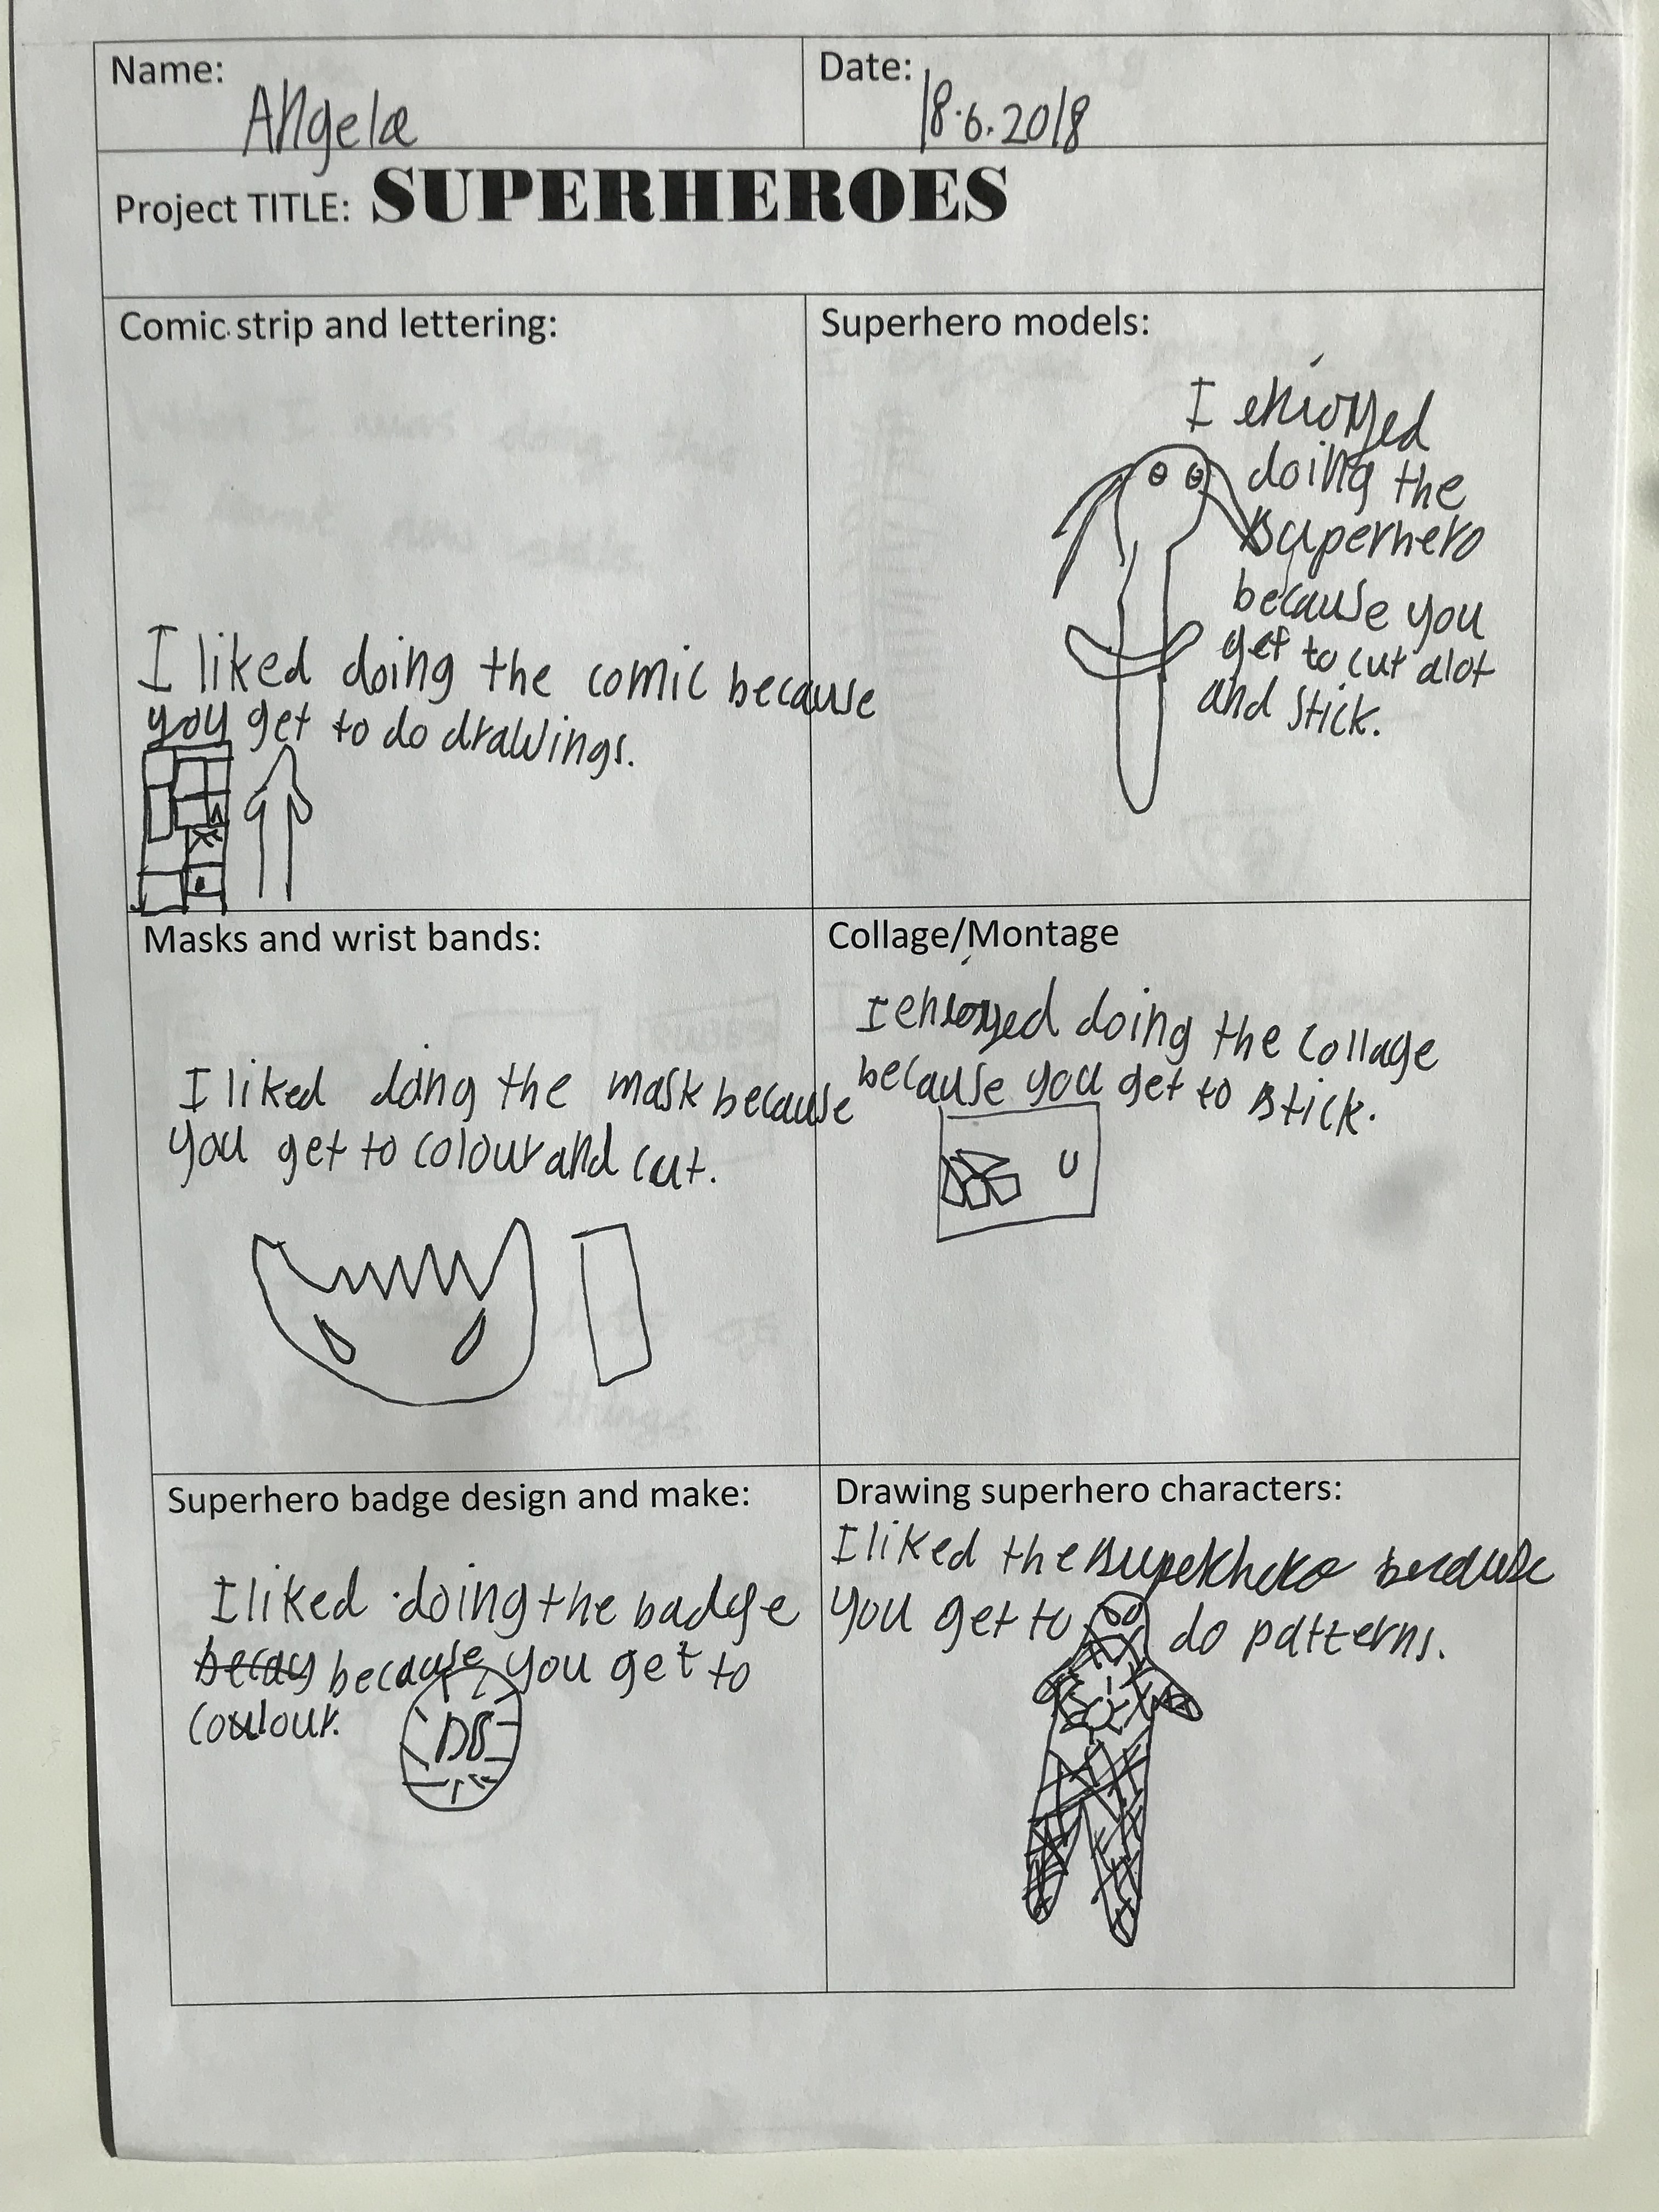 Name:
Angela
Date:
18.6.2018
Project TITLE: SUPERHEROES
Comic strip and lettering:
I liked doing the comic because
you get to do drawings.
Superhero models:
I enioyed
doing the
superhero
because you
get to cut alot
and stick.
Masks and wrist bands:
I liked doing the mask because
you get to colour and cut.
Collage/Montage
I enioyed doing the collage
because you get to stick.
Superhero badge design and make:
I liked doing the badge
becay because you get to
coulour.
DB
Drawing superhero characters:
I liked the superhero because
you get to do patterns.